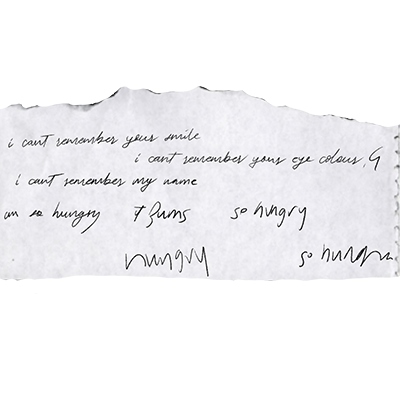 i cant remember your smile
i cant remember your eye colour, G
i cant remember my name
am so hungry so hungry
hungry so hungry